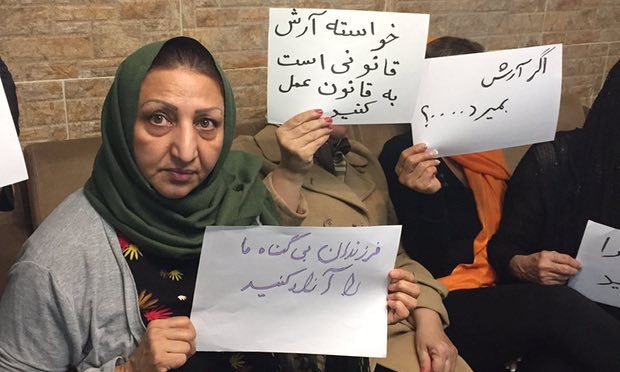 خواسته آرش
قانونی است
به قانون عمل
کنید
اگر آرش
بمیرد....؟
فرزندان بی گناه ما
را آزاد کنید